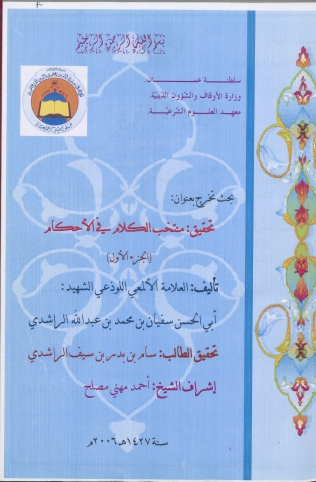 بسم الله الرحمن الرحيم
سلطنة عمان
وزارة الأوقاف والشؤون الدينية
معهد العلوم الشرعية
بحث تخرج بعنوان:
تحقيق: منتخب الكلام في الأحكام
(الجزء الأول)
تأليف: العلامة الألمعي اللوذعي الشهيد:
أبي الحسن سفيان بن محمد بن عبدالله الراشدي
تحقيق الطالب: سامر بن بدر بن سيف الراشدي
إشراف الشيخ: أحمد مهني مصلح
سنة ١٤٢٧هـ ٢٠٠٦م